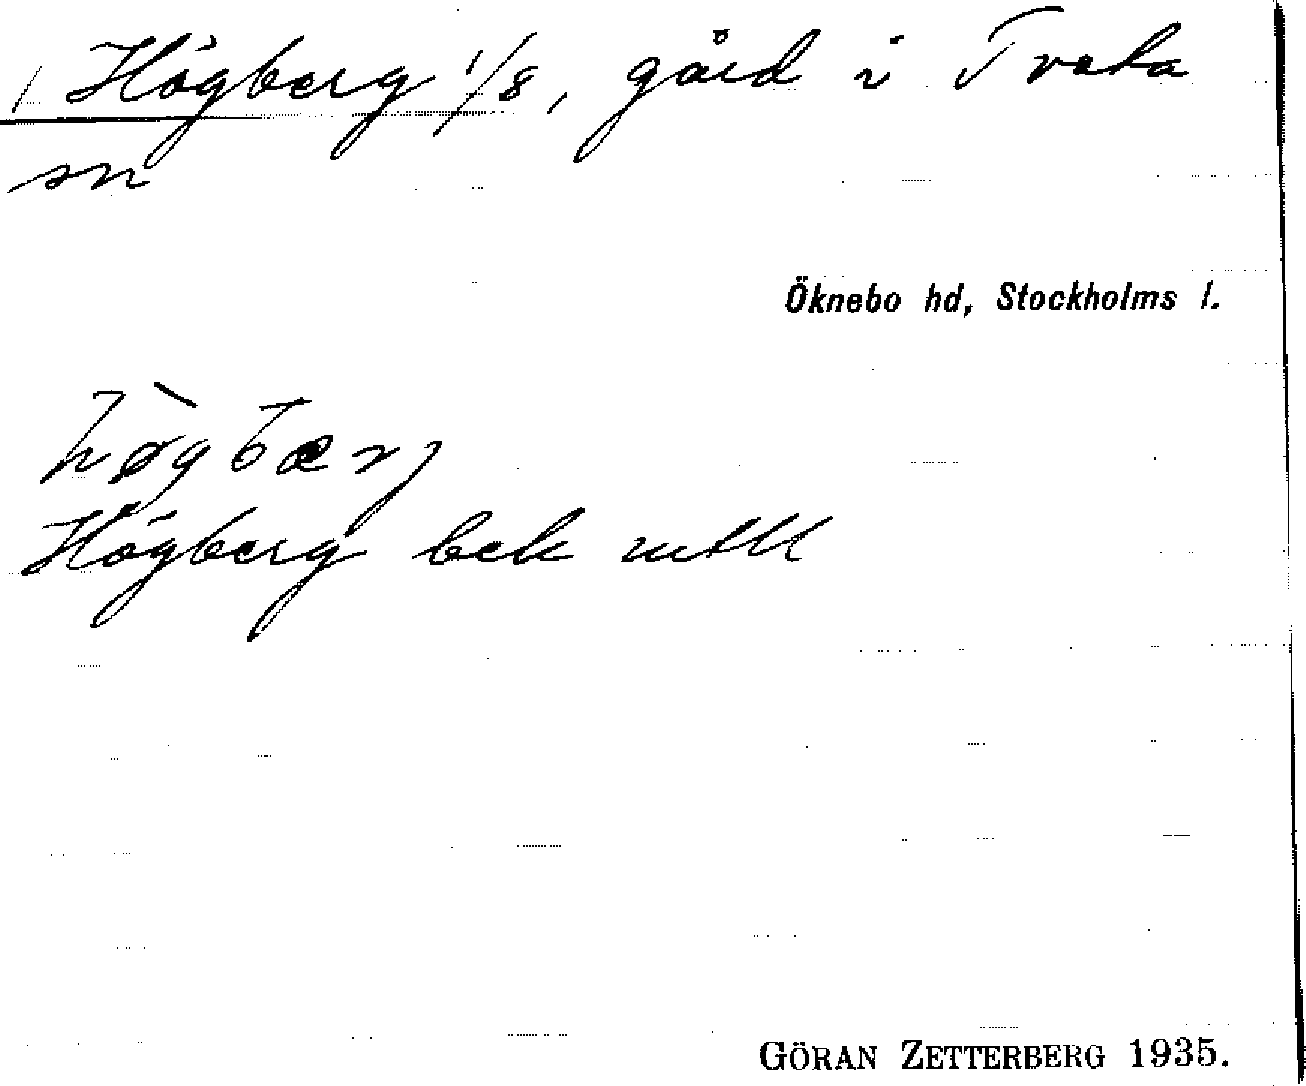 Högberg 1/8, gård i Tveta
sn
Öknebo hd, Stockholms l.
hø̀gbærj
Högberg bek mtll
GÖRAN ZETTERBERG 1935.